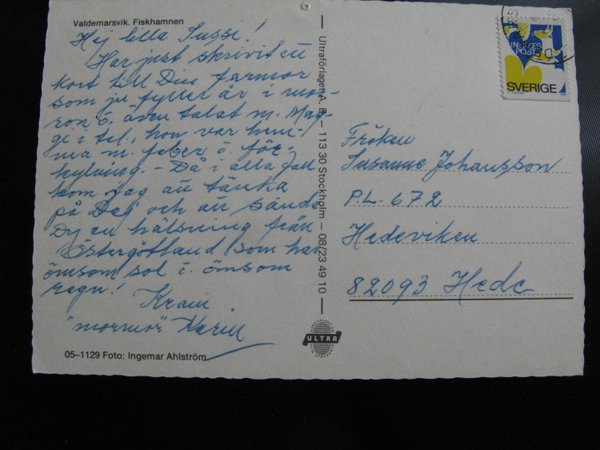 Valdemarsvik. Fiskhamnen
Hej lilla Susse!
Har just skrivit ett
kort till Din farmor
som ju fyller år i mor-
ron o. även talat m. Mag-
gi i tel, hon var hem-
ma m. feber o. för-
kylning. - Då i alla fall
kom jag att tänka
på Dig och att sända
Dej en hälsning från
Östergötland som har
ömsom sol o. ömsom
regn!
Kram
"mormor" Karin
05–1129 Foto: Ingemar Ahlström
Ultraförlaget A. B. — 113 30 Stockholm — 08/23 49 10
ULTRA
INRIKES
POST
SVERIGE
Fröken
Susanne Johansson
P.L. 672
Hedeviken
82093 Hede